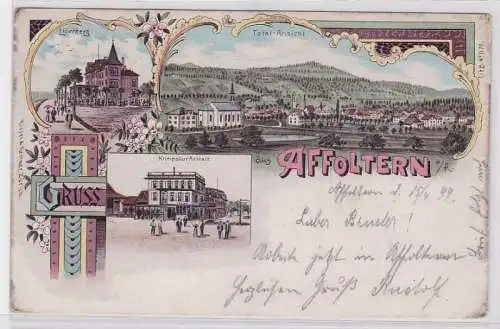 Lilienberg
Total-Ansicht
Kneippkur-Anstalt
GRUSS
aus
AFFOLTERN
a/A.
Affoltern d. 15/4 99.
Lieber Bruder!
Arbeite jetzt in Affoltern
Herzlichen Gruß Rudolf